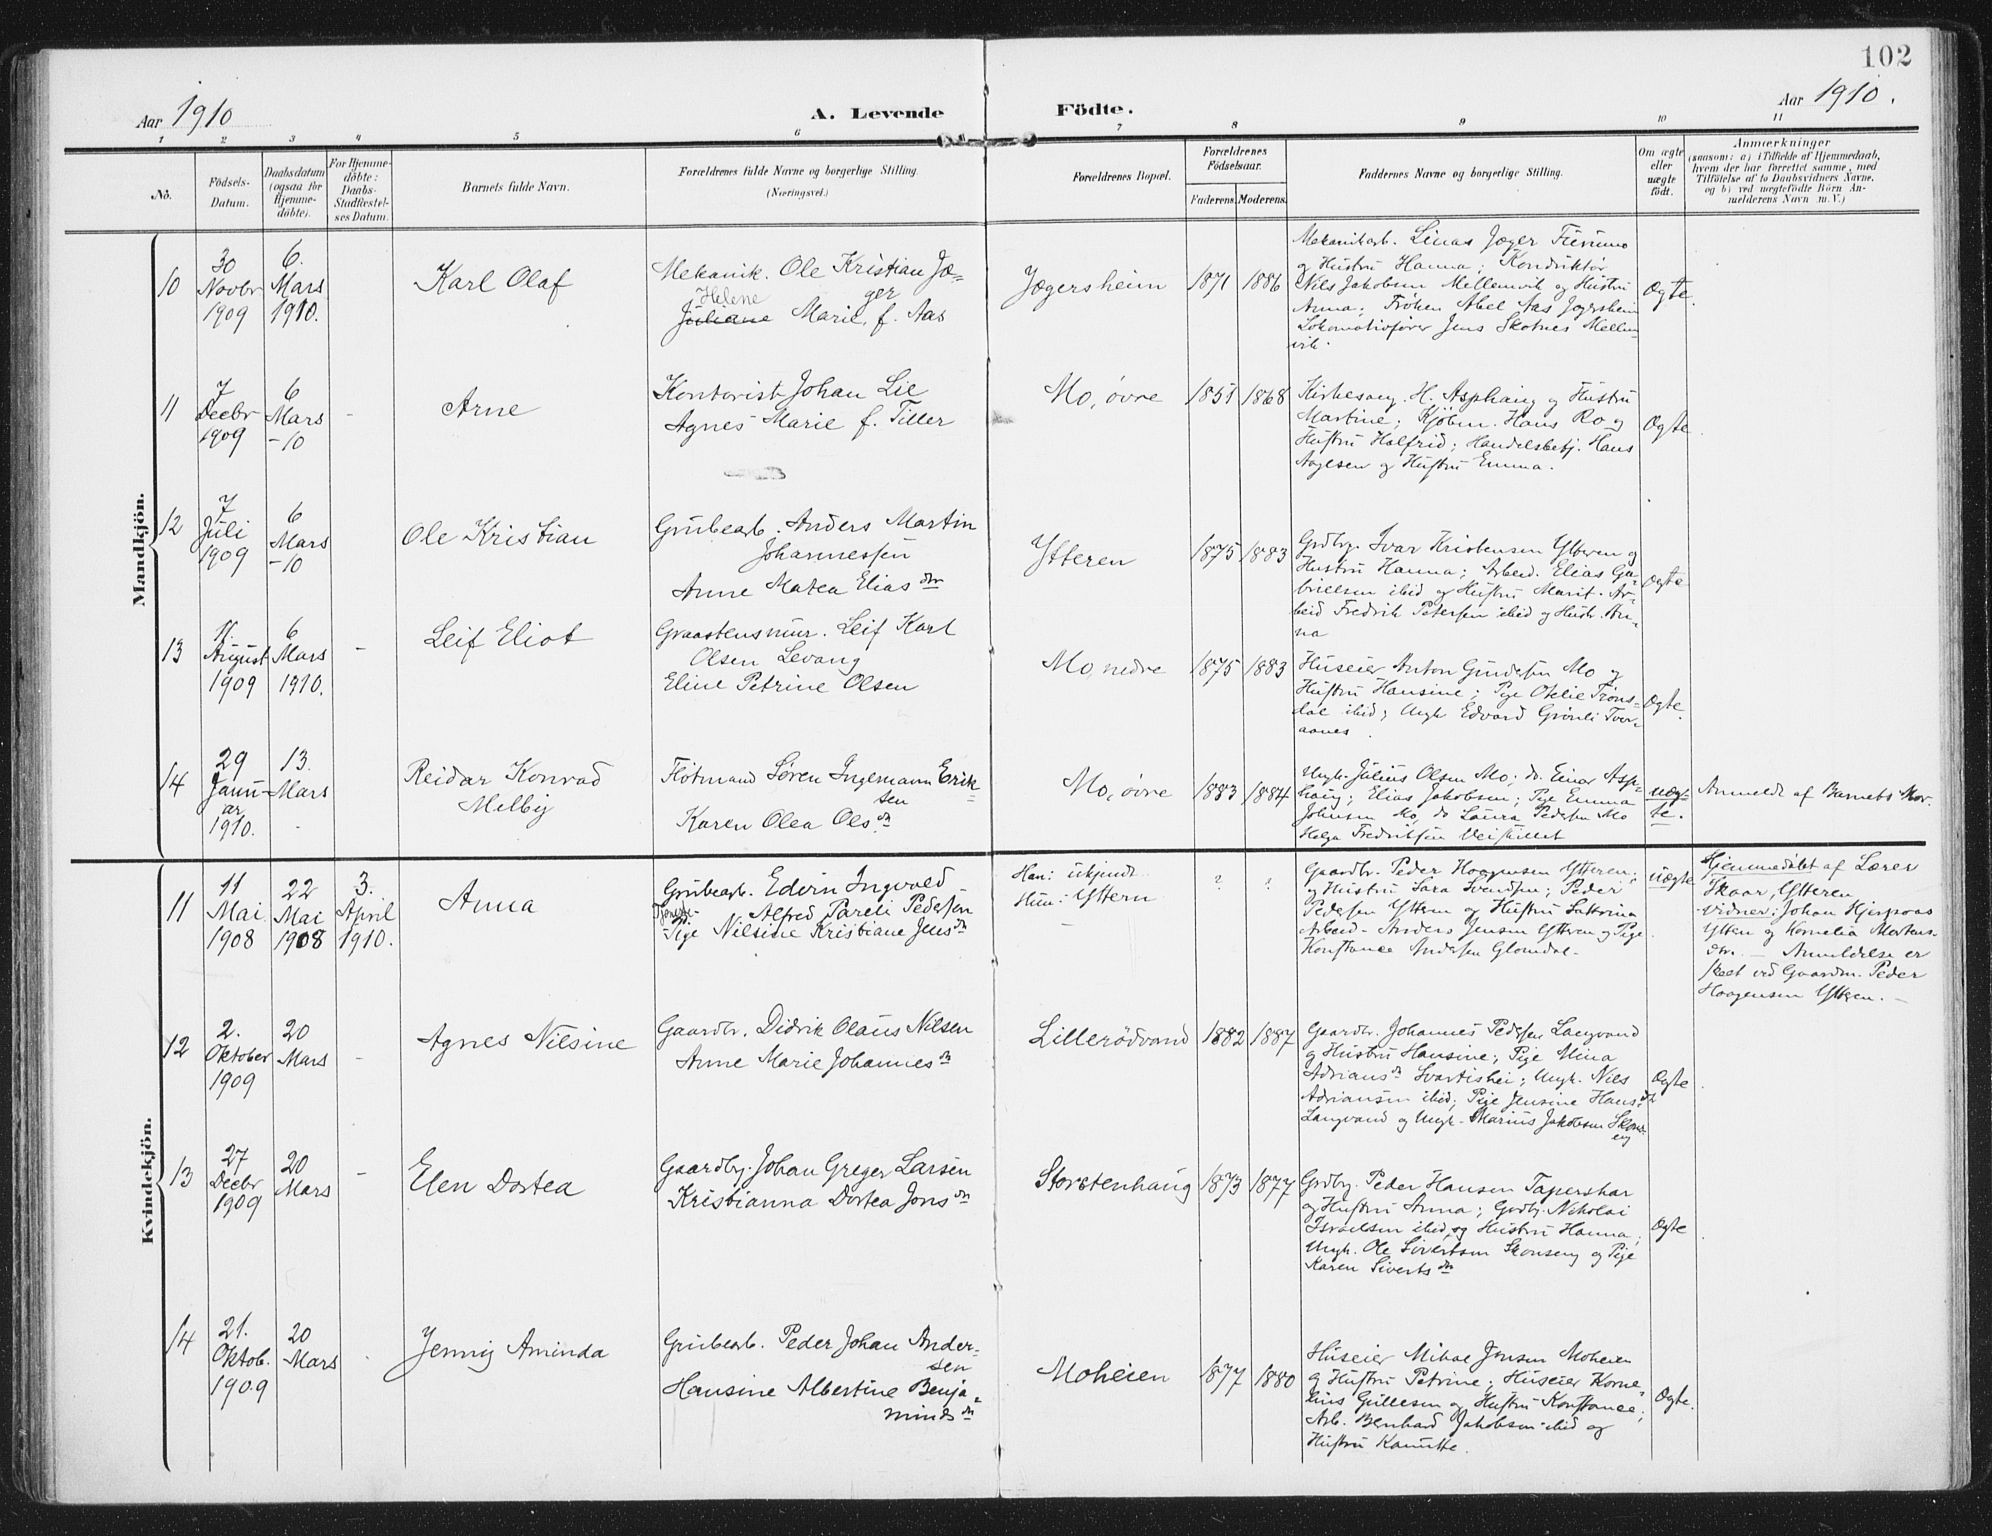 102
Aar 1910
A. Levende
Födte.
Aar 1910.
1 2 3 4 5 6 7 8 9 10 11
No.
Födsels-
Datum.
Daabsdatum
(ogsaa for
Hjemme-
döbte).
For Hjemme-
döbte:
Daabs-
Stadfæstel-
ses Datum.
Barnets fulde Navn.
Forældrenes fulde Navne og borgerlige Stilling.
(Næringsvei.)
Forældrenes Bopæl.
Forældrenes
Födselsaar.
Faderens. Moderens.
Faddernes Navne og borgerlige Stilling.
Om ægte
eller
uægte
födt.
Anmærkninger
(saasom: a) i Tilfælde af Hjemmedaab,
hvem der har forrettet samme, med
Tilföielse af to Daabsvidners Navne.
og b) ved uægtefödte Börn An-
melderens Navn m. V.)
Mandkjön.
10
30
Novbr
1909
6.
Mars
1910.
Karl Olaf
Mekanik. Ole Kristian Jæ-
ger
Helene
Juliane Marie, f. Aas
Jægersheim
1871 1886
Mekanikarb. Linas Jæger
og Hustru Hanna; Konduktør
Nils Jakobsen Mellemvik og Hustru
Anna; Frøken Abel Aas Jægersheim
Lokomotivfører Jens Skotnes Mellem-
vik.
Ægte.
11
7
Decbr
1909
6
Mars
-10
-
Arne
Kontorist Johan Lie
Agnes Marie f. Tiller
Mo, øvre
1851 1868
Kirkesang. H. Asphaug og Hustru
Martine; Kjøbm. Hans Ro og
Hustru Halfrid; Handelsbetj. Hans
og Hustru Emma.
Ægte.
12
7
Juli
1909
6
Mars
-10
Ole Kristian
Grubearb. Anders Martin
Johannessen
Anne Matea Elias dtr
Ytteren
1875 1883
Grdbr. Ivar Kristensen Ytteren og
Hustru Hanna; Arbeid. Elias Ga-
brielsen ibid og Hustru Marit. Ar-
beid Fredrik Petersen ibid og Hustr. An-
na
Ægte
13
11.
August
1909
6
Mars
1910.
-
Leif Eliot
Graastensmur. Leif Karl
Olsen Levang
Eline Petrine Olsen
Mo, nedre
1875 1883
Huseier Anton Gundersen Mo og
Hustru Hansine; Pige Otelie Trøns-
dal ibid; Ungk Edvard Grønli Tver-
aanes.
Ægte.
14
29
Janu-
ar
1910.
13.
Mars
Reidar Konrad
Melby
Fløtmand Søren Ingemann Erik-
sen
Karen Olea Ols dt
Mo, øvre
1883 1884
Ungk. Julius Olsen Mo; do. Einar Asp-
haug; Elias Jakobsen; Pige Emma
Johnsen Mo, do Laura Pedersen Mo
Helga Fredriksen Veiskillet
uæg-
te.
Anmeldt af Barnets Mor.
Kvindekjön.
11
11
Mai
1908
22
Mai
1908
3.
April
1910.
Anna
Grubearb. Edvin Ingvald
Alfred Pareli Pedersen
Pige Nilsine Kristiane Jens dt
Han: ukjendt.
Hun: Yttern
? ?
Gaardbr. Peder Haagensen Ytteren;
og Hustru Sara Svendsen; Peder
Pedersen Yttern og Hustru Katrina
Arbeid- Anders Jensen Ytteren og Pige
Konstance Andersen Glomdal.
uægte
Hjemmedøbt af Lærer
Skaar, Ytteren
Vidner: Johan Hjerpaas
Ytten og Kornelia Mortens-
dtr. - Anmeldelse er
skeet ved Gaardm. Peder
Haagensen Ytteren. -
12
2.
Oktober
1909
20
Mars
-
Agnes Nilsine
Gaardbr. Didrik Olaus Nilsen
Anne Marie Johannes dt
Lillerødvand
1882 1887
Gaardbr. Johannes Pedersen Langvand
og Hustru Hansine; Pige Mina
Adrians dt Svartishei; Ungk. Nils
Adriansen ibid; Pige Jensine Hans dt
Langvand og Ungk. Marius Jakobsen Skons-
eng
Ægte
13
27
Decbr
1909
20
Mars
-
Elen Dortea
Gaardbr. Johan Greger Larsen
Kristianna Dortea Jons dt
Storstenhaug
1873 1877
Grdbr. Peder Hansen Taperskar
og Hustru Anna; Grdbr. Nikolai
Israelsen ibid, og Hustru Hanna;
Ungk. Ole Sivertsen Skonseng og Pige
Karen Siverts dtr
Ægte
14
21.
Oktob.
1909
20
Mars
Jenny Aminda
Grubearb. Peder Johan Ander-
sen
Hansine Albertine Benja-
mins dt
Moheien
1877 1880
Huseier Mikal Jensen Moheien
og Hustru Petrine; Huseier Korne-
lius Gullesen og Hustru Konstance;
Arb. Bernhard Jakobsen ibid og
Hustru
Ægte.